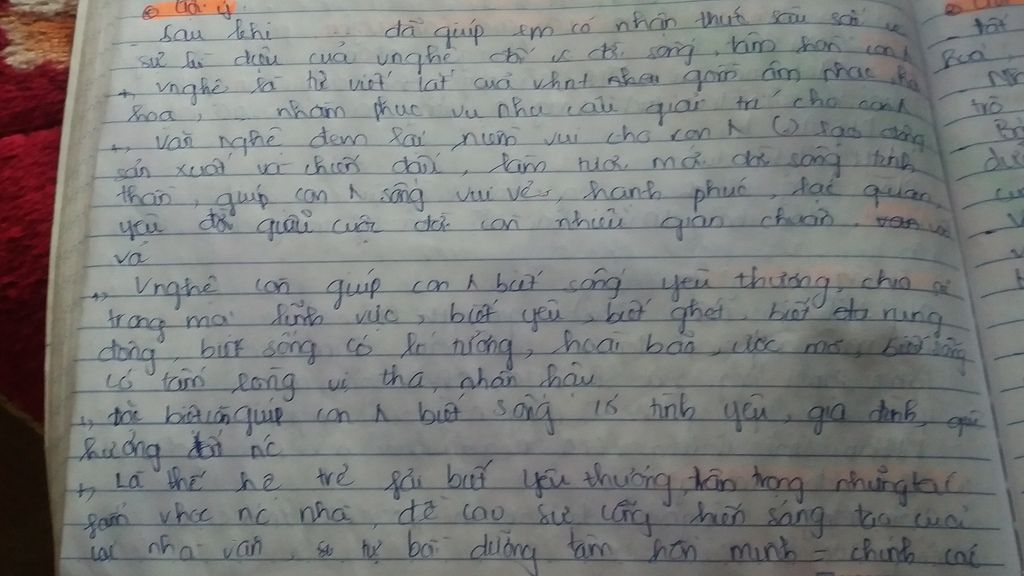 Gợi ý
Sau khi ... đã giúp em có nhận thức sâu sắc về
sự kì diệu của vnghệ đối vs đời sống, tâm hồn con λ
+, vnghệ là từ viết tắt của vhnt gồm âm nhạc, hội
hoạ, ... nhằm phục vụ nhu cầu giải trí cho con λ
+, văn nghệ đem lại niềm vui cho con λ lao động
sản xuất và chiến đấu, làm tươi mới đời sống tinh
thần, giúp con λ sống vui vẻ, hạnh phúc, lạc quan,
yêu đời cuộc đời còn nhiều gian truân
và
+, Vnghệ còn giúp con λ biết sống yêu thương, chia sẻ
trong mọi lĩnh vực, biết yêu, biết ghét, biết rung
động, biết sống có lí tưởng, hoài bão, ước mơ, biết sống
có tấm lòng vị tha, nhân hậu
+, đặc biệt còn giúp con λ biết sống tình yêu, gia đình, quê
hương nc
+, Là thế hệ trẻ biết yêu thương, trân trọng những tác
phẩm vhọc nc nhà, đề cao sự cống hiến sáng tạo của
các nhà văn, tự bồi dưỡng tâm hồn mình = chính các